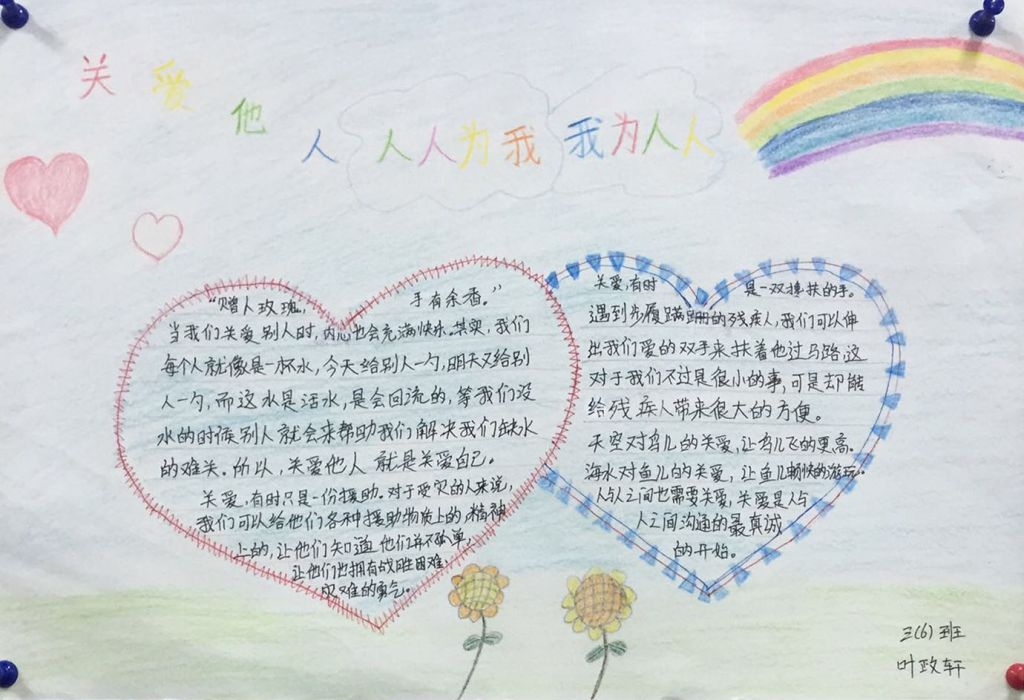 关爱他人 人人为我 我为人人
“赠人玫瑰, 手有余香。”
当我们关爱别人时,内心也会充满快乐。其实,我们
每个人就像是一杯水,今天给别人一勺,明天又给别
人一勺,而这水是活水,是会回流的,等我们没
水的时候别人就会来帮助我们解决我们缺水
的难关。所以,关爱他人就是关爱自己。
关爱,有时只是一份援助。对于受灾的人来说,
我们可以给他们各种援助物质上的,精神
上的,让他们知道他们并不孤单,
让他们也拥有战胜困难,
难的勇气。
关爱,有时是一双搀扶的手。
遇到步履蹒跚的残疾人,我们可以伸
出我们爱的双手来扶着他过马路,这
对于我们不过是很小的事,可是却能
给残疾人带来很大的方便。
天空对鸟儿的关爱,让鸟儿飞的更高。
海水对鱼儿的关爱,让鱼儿畅快的游玩。
人与人之间也需要关爱,关爱是人与
人之间沟通的最真诚
的开始。
三(6)班
叶政轩